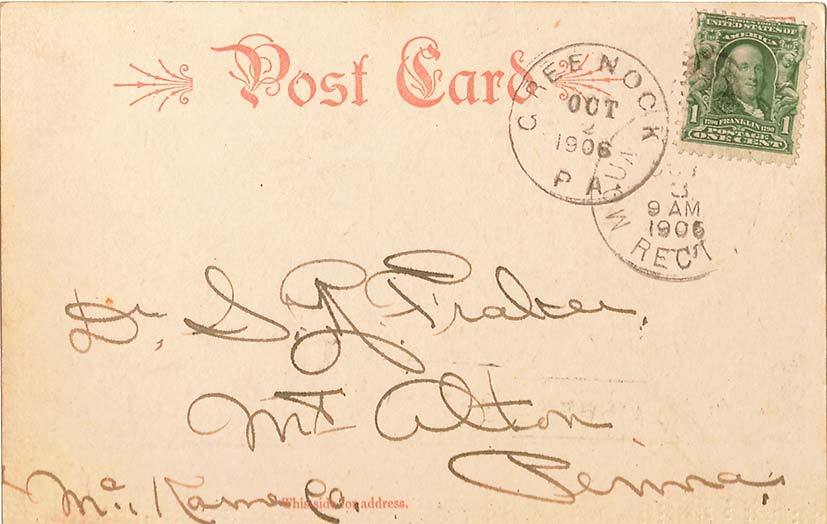 Post Card
UNITED STATES OF
AMERICA
1 FRANKLIN 1
POSTAGE
ONE CENT
GREENOCK
OCT
2
1906
PA
3
9 AM
1906
REC'
Dr. S. H. Fraker,
Mt Alton
Mc. Kane Co. Penna,
This side for address.